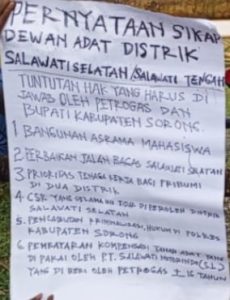 PERNYATAAN SIKAP
DEWAN ADAT DISTRIK
SALAWATI SELATAN / SALAWATI TENGAH
TUNTUTAN HAK YANG HARUS DI
JAWAB OLEH PETROGAS DAN
BUPATI KABUPATEN SORONG.
1 BANGUNAN ASRAMA MAHASISWA
2. PERBAIKAN JALAN SALAWATI SELATAN
3. PRIORITAS TENAGA KERJA BAGI PRIBUMI
DI DUA DISTRIK
4. CSR YANG SELAMA INI TDK DI PEROLEH DISTRIK
SALAWATI SELATAN
5. PENCABUTAN KRIMINALISASI HUKUM DI POLRES
KABUPATEN SORONG
6. PEMBAYARAN KOMPENSASI TANAH ADAT YANG
DI PAKAI OLEH PT. SALAWATI
YANG DI BERI OLEH PETROGAS ± 16 TAHUN